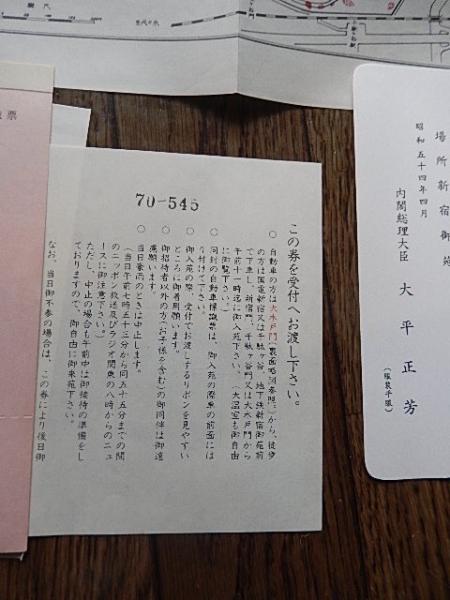 場所新宿御苑
昭和五十四年四月
内閣総理大臣 大平正芳
(服装平服)
70-545
この券を受付へお渡し下さい。
○ 自動車の方は大木戸門(裏面略図参照。)から、徒歩
の方は国電新宿又は千駄ヶ谷、地下鉄新宿御苑前
で下車し、新宿門、千駄ヶ谷門又は大木戸門から
午前十一時迄に御入苑下さい。(大温室も御自由
に御覧下さい。)
○ 同封の自動車標識票は、御入苑の際車の前面には
り付けて下さい。
○ 御入苑の際、受付でお渡しするリボンを見やすい
ところに御着用願います。
○ 御招待者以外の方(お子様を含む)の御同伴は御遠
慮願います。
○ 当日豪雨のときは中止します。
(当日午前七時五十三分から同五十五分までの間
のニッポン放送及びラジオ関東の八時からのニュ
ースに御注意下さい。)
ただし、中止の場合も午前中は御接待の準備をし
ておりますので、御自由に御来苑下さい。
なお、当日御不参の場合は、この券により後日御
票